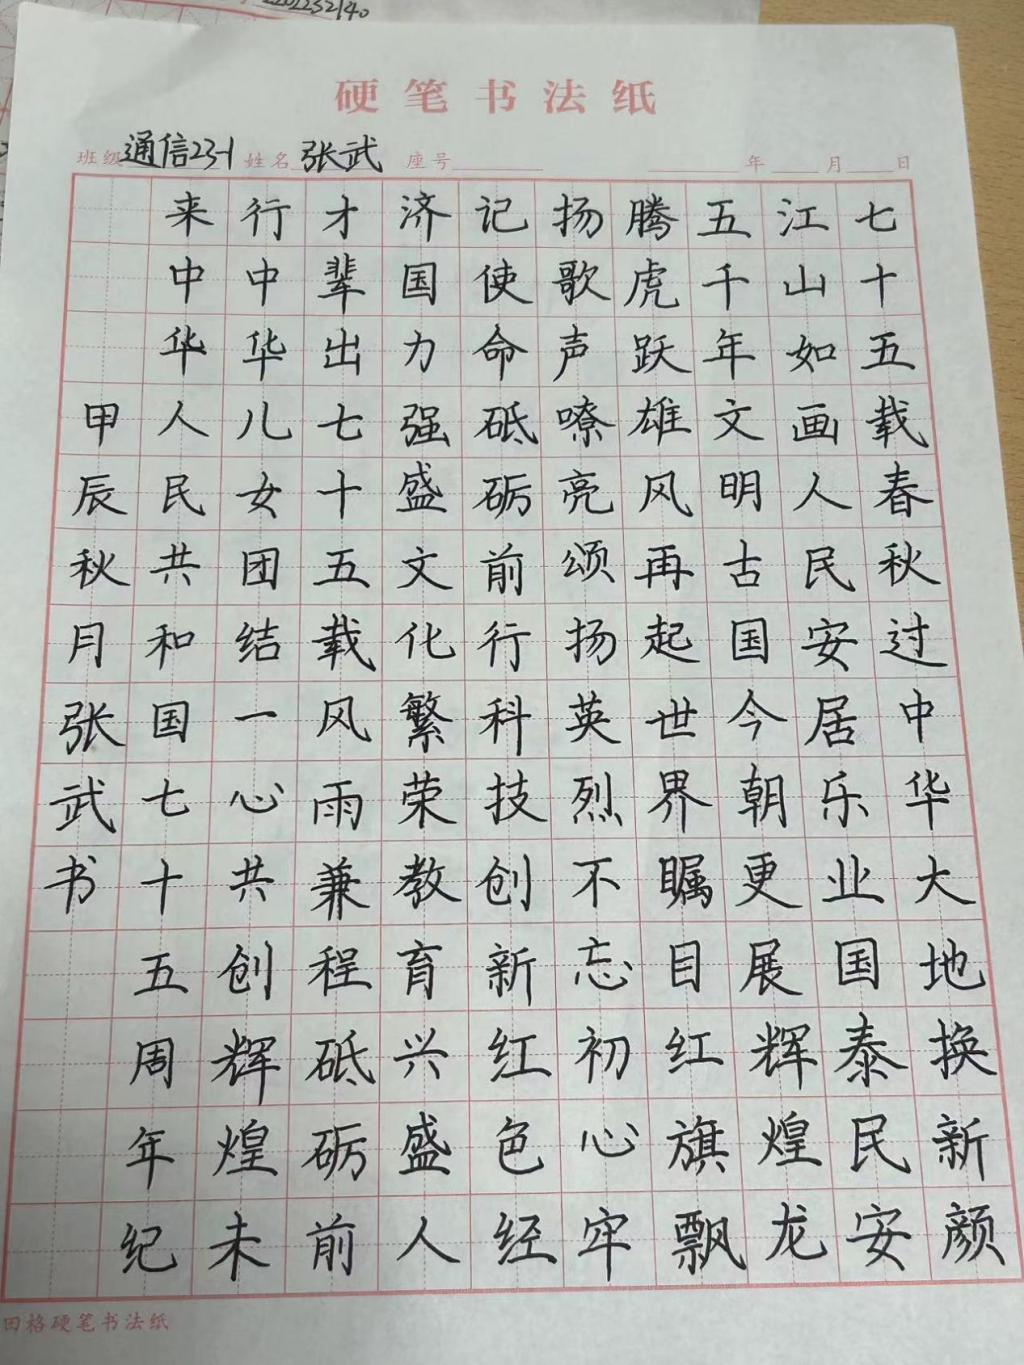 2201232140
硬笔书法纸
班级 通信23-1 姓名 张武 座号 年 月 日
七十五载春秋过中华大地换新颜
江山如画人民安居乐业国泰民安
五千年文明古国今朝更展辉煌龙
腾虎跃雄风再起世界瞩目红旗飘
扬歌声嘹亮颂扬英烈不忘初心牢
记使命砥砺前行科技创新红色经
济国力强盛文化繁荣教育兴盛人
才辈出七十五载风雨兼程砥砺前
行中华儿女团结一心共创辉煌未
来中华人民共和国七十五周年纪
甲辰秋月张武书
田格硬笔书法纸